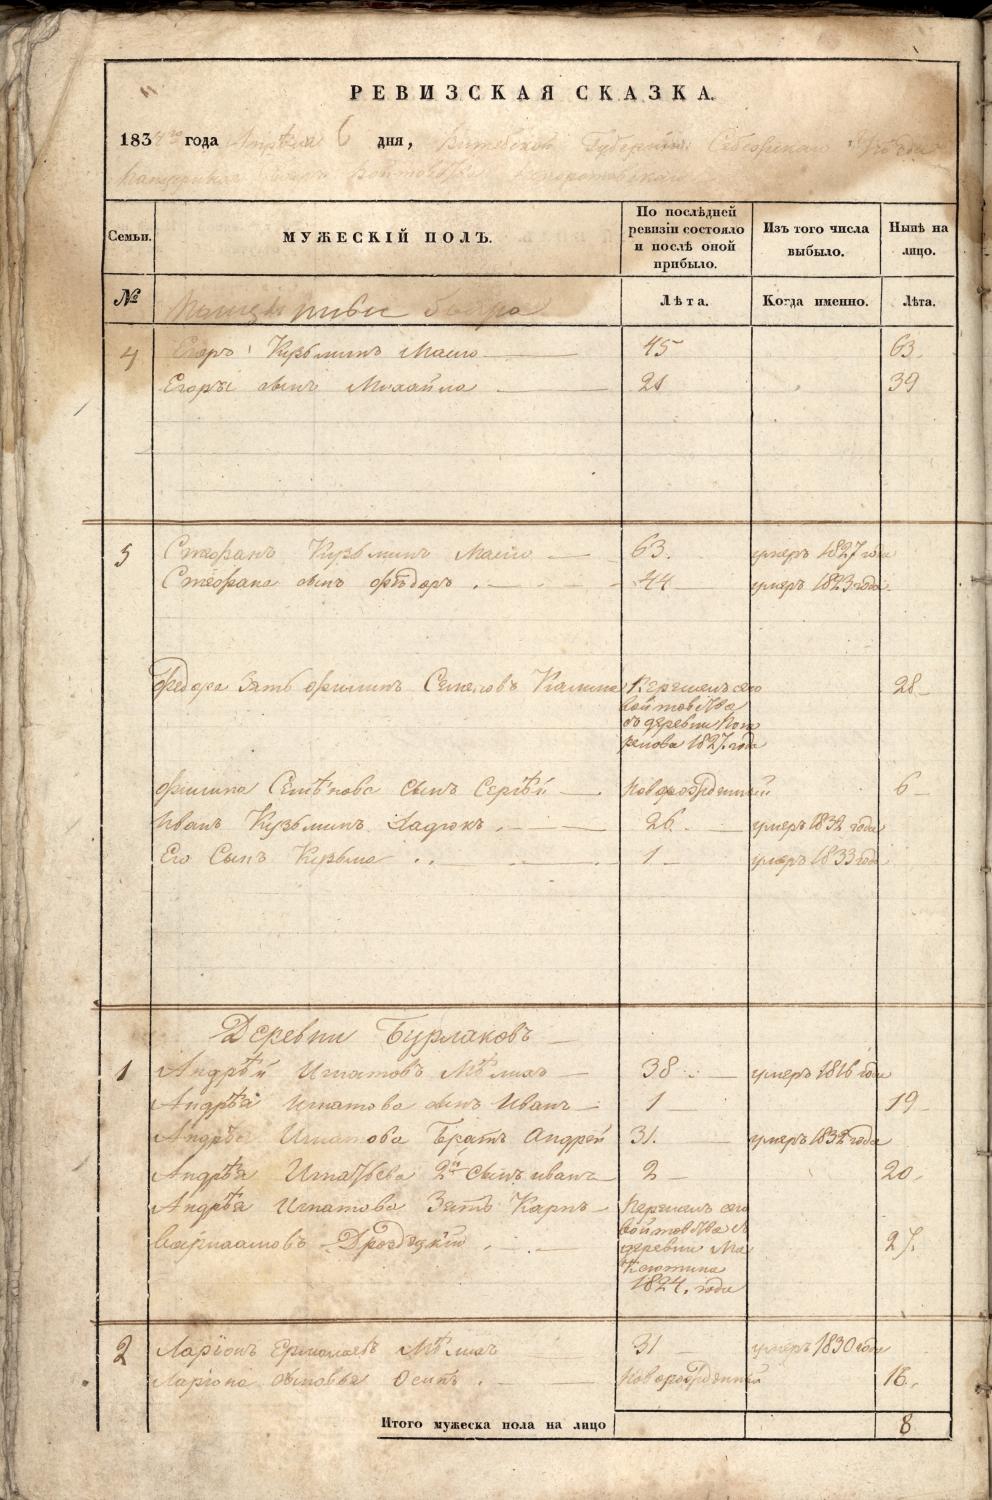 РЕВИЗСКАЯ СКАЗКА.
1834го года Апреля 6 дня, Витебской Губернии Себежскаго Уѣзда
Семьи. МУЖЕСКІЙ ПОЛЪ. По послѣдней ревизіи состояло и послѣ оной прибыло. Изъ того числа выбыло. Нынѣ на лицо.
№ Лѣта. Когда именно. Лѣта.
4 Егоръ Кузьминъ 45 63.
Егора сынъ Михайло 21 39
5 Стефанъ Кузьминъ 63. умеръ 1827 года
Стефана сынъ Ѳедоръ 44 умеръ 1823 года
Федора Зять Филипъ Семеновъ Калина 28
войтовства
съ деревни
1827. года
Филипа Семѣнова сынъ Сергѣй Новорожденный 6
Иванъ Кузьминъ Ладюкъ 26. умеръ 1832 года
Его Сынъ Кузьма 1 умеръ 1833 года
Деревни Бурлаковъ
1 Андрѣй Игнатовъ 38 умеръ 1816 года
Андрѣя Игнатова сынъ Иванъ 1 19
Андрѣя Игнатова Братъ Андрей 31. умеръ 1832 года
Андрѣя Игнатьева 2й сынъ иванъ 2 20.
Андрѣя Игнатова Зять Карпъ
войтовства съ
деревни
1824. года
27.
2 Ларіонъ Ермолаевъ 31 умеръ 1830 года
Ларіона сыновья Осипъ Новорожденный 16.
Итого мужеска пола на лицо 8